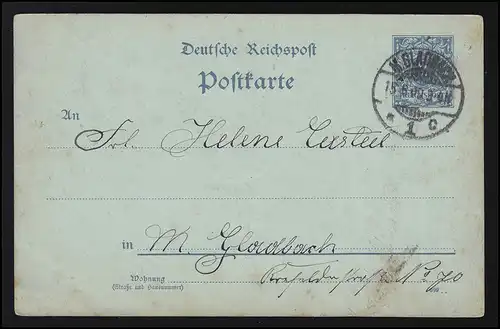 Deutsche Reichspost
Postkarte
M. GLADBACH
1 c
An
Frl. Helene
in M. Gladbach
Wohnung
(Straße und Hausnummer)
Krefelderstraße No 70